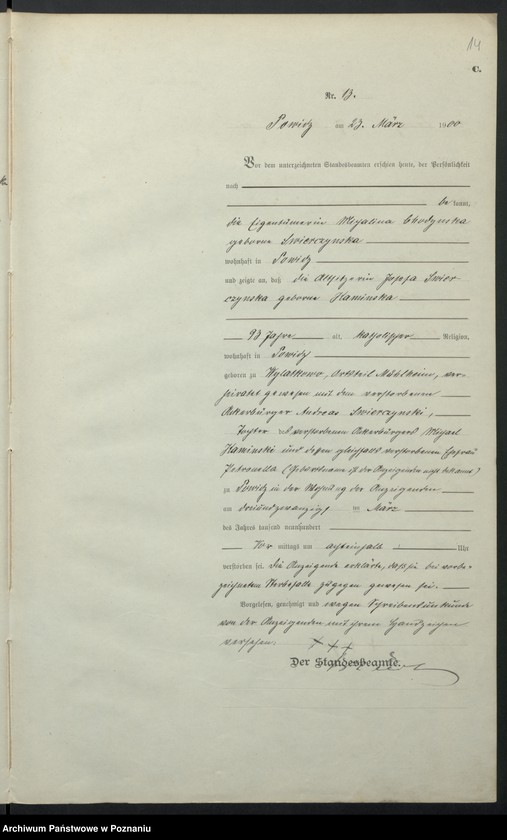 14
C.
Nr. 13.
Powidz am 23. März 1900
Vor dem unterzeichneten Standesbeamten erschien heute, der Persönlichkeit
nach
be kannt,
die Eigentümerin Michalina Chodynska
geborne Swierczynska
wohnhaft in Powidz
und zeigte an, daß die Altsitzerin Josefa Swier-
czynska geborne Kaminska
93 Jahre alt, katholischer Religion,
wohnhaft in Powidz
geboren zu Wylatkowo, Ortsteil Mühlheim, ver-
heiratet gewesen mit dem verstorbenen
Ackerbürger Andreas Swierczynski,
Tochter des verstorbenen Ackerbürgers Michael
Kaminski und dessen gleichfalls verstorbenen Ehefrau
Petronella (Geburtsname ist der Anzeigenden nicht bekannt)
zu Powidz in der Wohnung der Anzeigenden
am dreiundzwanzigsten März
des Jahres tausend neunhundert
Vor mittags um achteinhalb Uhr
verstorben sei. Die Anzeigende erklärte, daß sie bei vorbe-
zeichneten Sterbefalle zugegen gewesen sei.
Vorgelesen, genehmigt und wegen Schreibensunkunde
von der Anzeigenden mit ihrem Handzeichen
versehen. + + +
Der Standesbeamte.
Archiwum Państwowe w Poznaniu